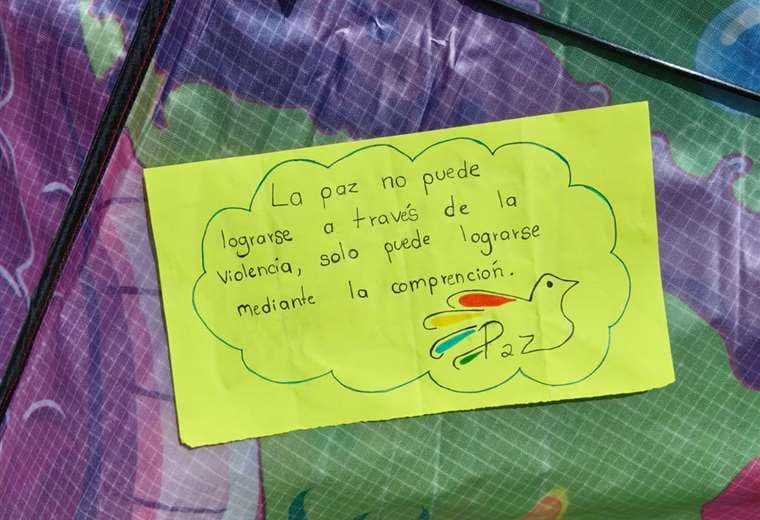 La paz no puede
lograrse a través de la
violencia, solo puede lograrse
mediante la comprención.
Paz